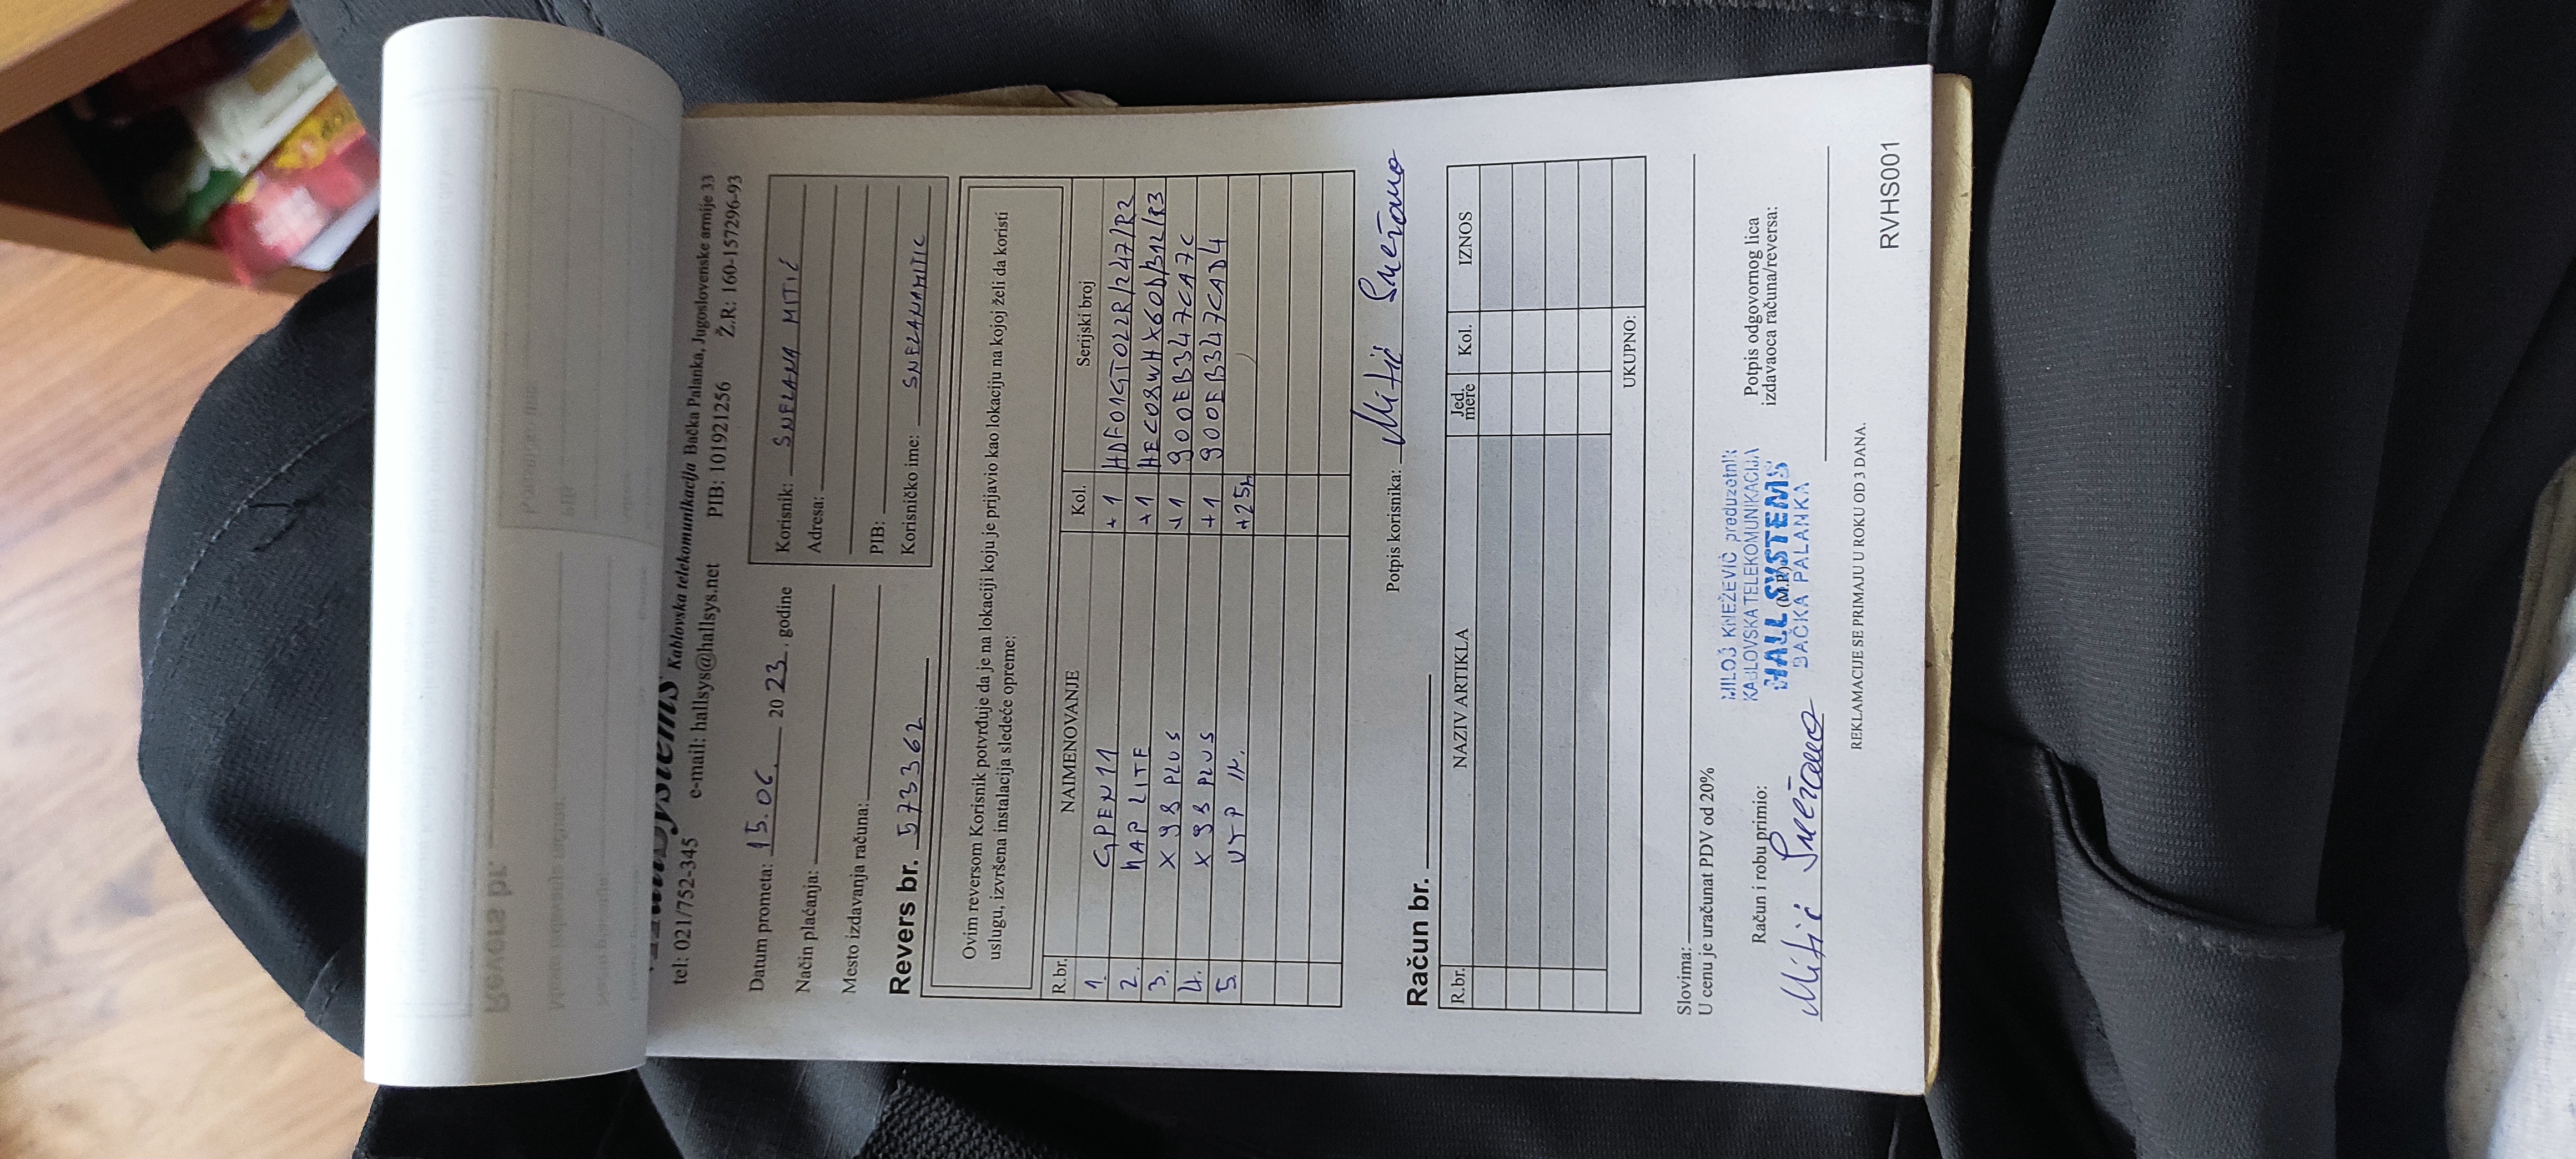 HallSystems Kablovska telekomunikacija Bačka Palanka, Jugoslovenske armije 33
tel: 021/752-345 e-mail: hallsys@hallsys.net PIB: 101921256 Ž.R: 160-157296-93
Datum prometa: 15.06. 2023. godine
Način plaćanja:
Mesto izdavanja računa:
Korisnik: SNEŽANA MITIĆ
Adresa:
PIB:
Korisničko ime: SNEŽANAMITIC
Revers br. 5733362
Ovim reversom Korisnik potvrđuje da je na lokaciji koju je prijavio kao lokaciju na kojoj želi da koristi
uslugu, izvršena instalacija sledeće opreme:
R.br. NAIMENOVANJE Kol. Serijski broj
1. GPEN11 +1 HDF01GT022R/247/R2
2. HAP LITE +1 HEC08WHX60D/312/R3
3. X 98 PLUS +1 900EB347CA7C
4. X 98 PLUS +1 900EB347CAD4
5. UTP IN. +25m
Potpis korisnika: Mitić Snežana
Račun br.
R.br. NAZIV ARTIKLA Jed. mere Kol. IZNOS
UKUPNO:
Slovima:
U cenu je uračunat PDV od 20%
Račun i robu primio:
Mitić Snežana
MILOŠ KNEŽEVIĆ preduzetnik
KABLOVSKA TELEKOMUNIKACIJA
HALL SYSTEMS
(M.P.)
BAČKA PALANKA
Potpis odgovornog lica
izdavaoca računa/reversa:
REKLAMACIJE SE PRIMAJU U ROKU OD 3 DANA.
RVHS001